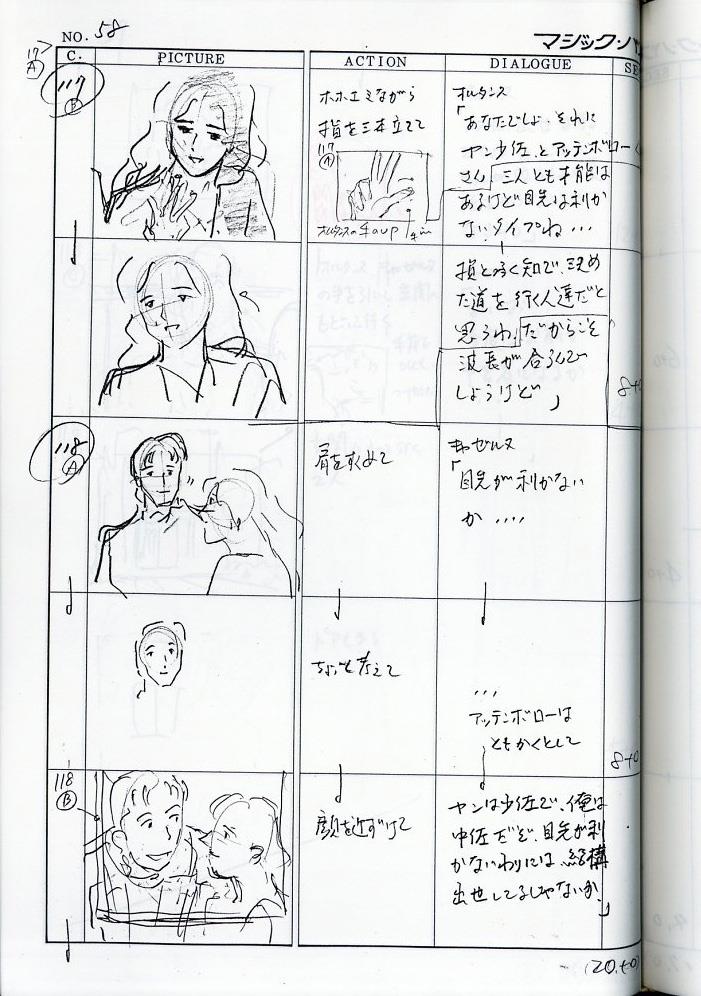 NO. 58
マジック・バ
C.
PICTURE
ACTION
DIALOGUE
SE
117
A
117
B
ホホエミながら
指を三本立てて
117
A
オルタンスの手のup
オルタンス
「あなたでしょ、それに
ヤン少佐、とアッテンボロー
さん 三人とも才能は
あるけど目先は利か
ないタイプね・・・
損と良く知って、決め
た道を行く人達だと
思うわ、だからこそ
波長が合うんで
しょうけど」
8+0
118
A
肩をすくめて
キャゼルヌ
「目先が利かない
か ・・・・
ちょっと考えて
・・・
アッテンボローは
ともかくとして
8+0
118
B
顔を近ずけて
ヤンは少佐で、俺は
中佐だぞ、目先が利
かないわりには、結構
出世してるじゃないか。」
(20+0)